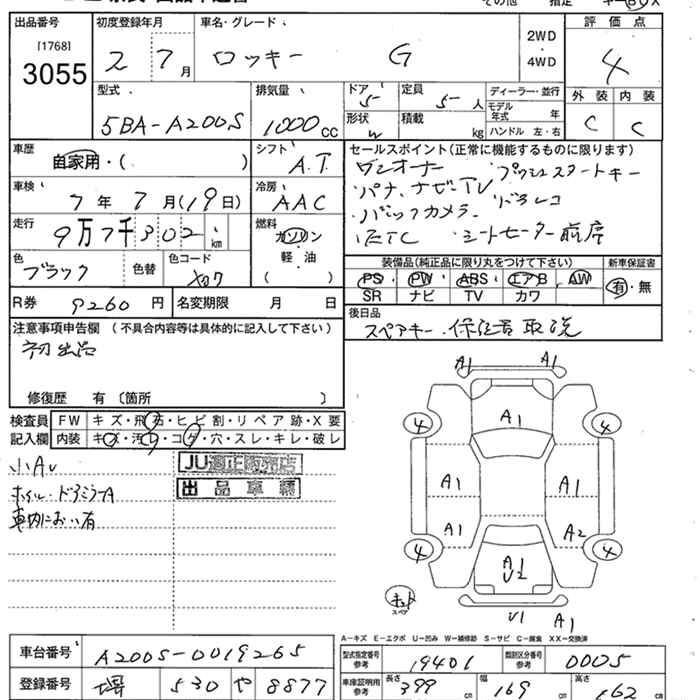 その他
出品番号 初度登録年月 車名・グレード 評価点
[1768]
3055
2 7月 ロッキー G 2WD・4WD 4
型式 排気量 ドア 定員 ディーラー・並行 外装 内装
5BA-A200S 1000cc 5 5人 モデル年式 年 C C
形状 W 積載 kg ハンドル 左・右
車歴 シフト セールスポイント(正常に機能するものに限ります)
自家用・( ) A.T. ワンオーナー プッシュスタートキー
車検 冷房 パナ、ナビ-TV ドラレコ
7年7月(19日) AAC バックカメラ
走行 燃料 ETC シートヒーター前席
9万7千302km ガソリン
軽・油
( )
色 色替 色コード 装備品(純正品に限り丸をつけて下さい) 新車保証書
ブラック X07 PS PW ABS エアB AW 有・無
SR ナビ TV カワ
R券 9260円 名変期限 月 日
後日品
スペアキー、保証書 取説
注意事項申告欄 (不具合内容等は具体的に記入して下さい)
初出品
修復歴 有〔箇所 〕
検査員 FW キズ・飛石・ヒビ割・リペア跡・X要
記入欄 内装 キズ・汚れ・コゲ・穴・スレ・キレ・破レ
小AU
ホイル・ドアミラーA
車内におい有
JU適正販売店
出品車輌
A1 A1
4 A1 4
A1 A1
A1 A2
4 A1 U2 4
スペア
U1 A1
A-キズ E-エクボ U-凹み W-補修跡 S-サビ C-腐食 XX-交換済
車台番号 A200S-0019265
型式指定番号 参考 19401 類別区分番号 参考 0005
登録番号 堺 530 や 8877
車庫証明用 参考 長さ 399cm 幅 169cm 高さ 162cm